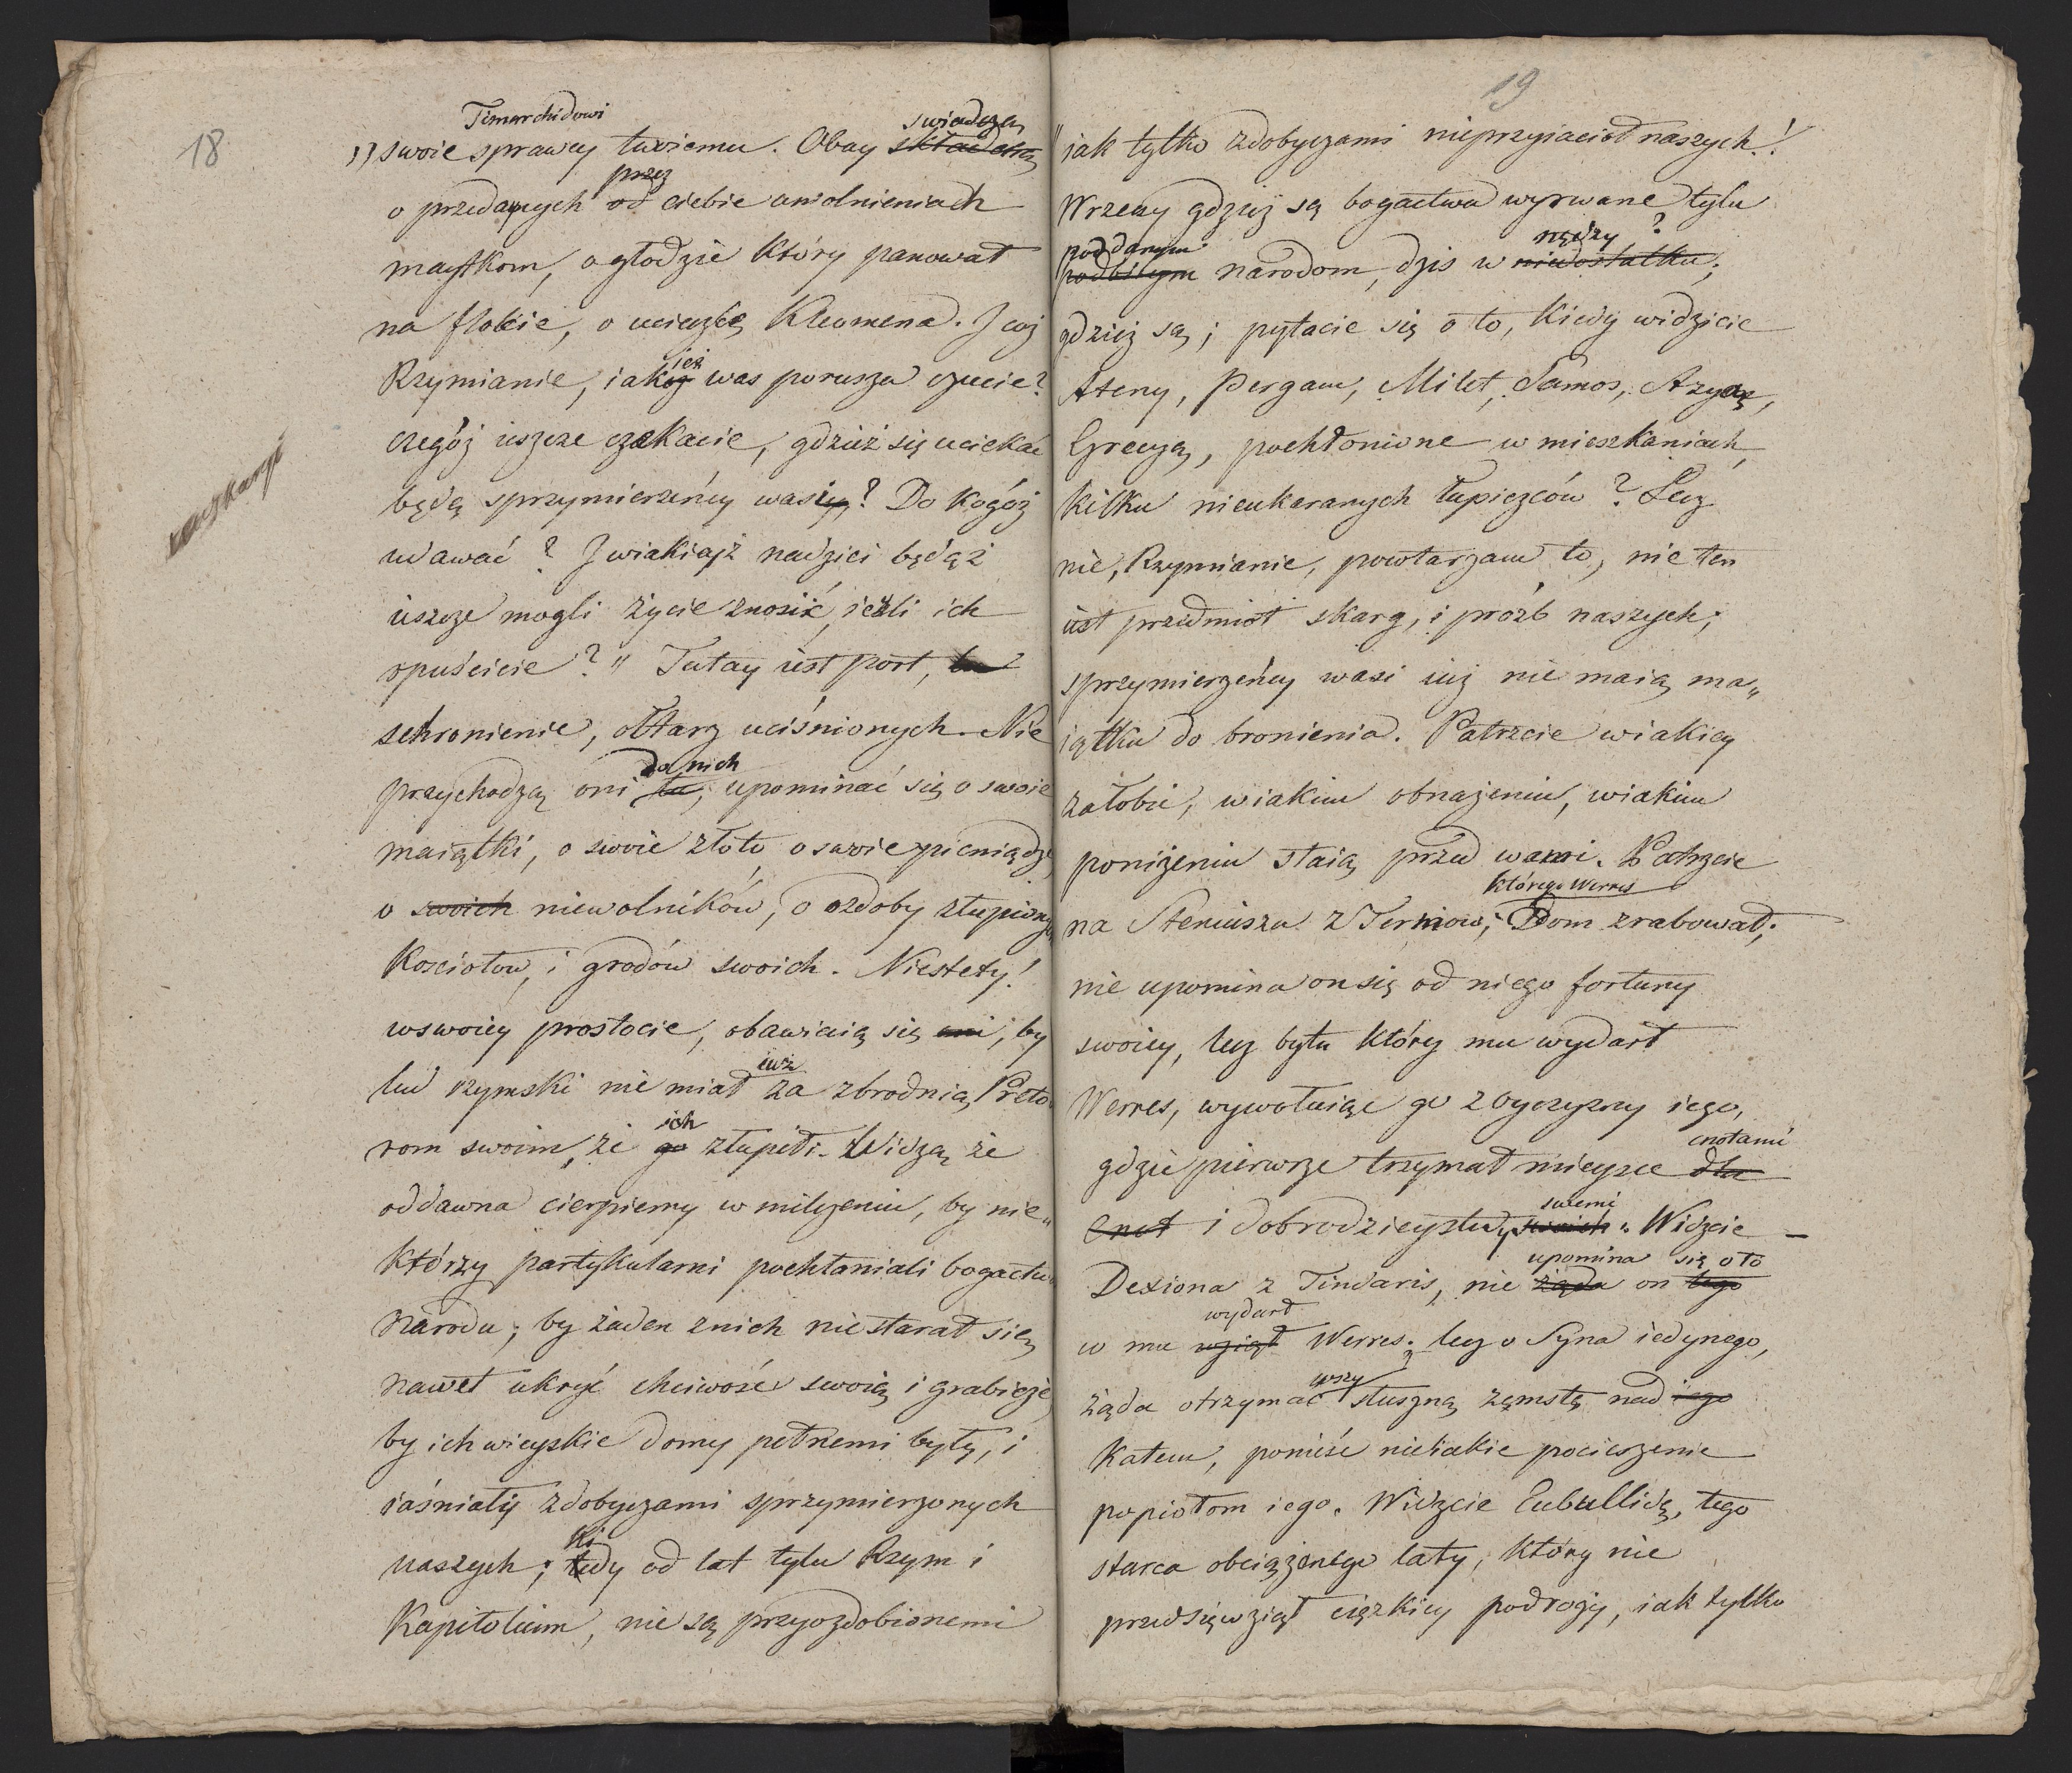 18
Timarchidowi swiadczą
„ swoie sprawcy twoiemu. Obay
przez
o przedaynych od ciebie uwolnieniach
maytkom, o głodzie który panował
na flocie, o ucieczce Kleomena. J coż
ież
Rzymianie, iakoż was porusza czucie?
czegóż ieszcze czekacie, gdzież się uciekać
będą sprzymierzeńcy wasi? Do kogóż
udawać? J wiakieyż nadziei będąż
ieszcze mogli życie znosić, ieżli ich
opuścicie? „ Tutay iest port, tu
schronienie, ołtarz uciśnionych. Nie
do nich
przychodzą oni tu, upominać się o swoie
maiątki, o swoie złoto, o swoie pieniądze,
o swoich niewolników, o ozdoby złupionych
Kosciołow, i grodów swoich. Niestety!
wswoiey prostocie, obawiaią się oni, by
iuż
lud rzymski nie miał za zbrodnią, Preto
ich
rom swoim, że go złupili. Widzą że
oddawna cierpiemy w milczeniu, by nie„
którzy partykularni pochłaniali bogactwa
Narodu; by żaden znich niestarał się
nawet ukryć chciwość swoią i grabieże,
by ich wieyskie domy pełnemi były, i
iaśniały zdobyczami sprzymierzonych
ki
naszych; tedy od lat tylu Rzym i
Kapitolium, nie są przyozdobionemi
19
„ jak tylko zdobyczami nieprzyiacioł naszych!
Wrzeczy gdzież są bogactwa wyrwane tylu
poddanym nędzy?
podbitym narodom, dzis w niedostatku;
gdzież są; pytacie się o to, kiedy widzicie
Ateny, Pergam, Milet, Samos, Azyą,
Grecyą, pochłonione w mieszkaniach,
kilku nieukaranych łupiezców? Lecz
nie, Rzymianie, powtarzam to, nie ten
iest przedmiot skarg, i próźb naszych;
sprzymierzeńcy wasi iuż nie maią ma„
iątku do bronienia. Patrzcie wiakiey
żałobie, wiakim obnażeniu, wiakim
poniżeniu staią przed wami. Patrzcie
którego Werres
na Steniusza z Termow, Dom zrabował;
nie upomina on się od niego fortury
swoiey, lecz bytu który mu wydarł
Werres, wywołuiąc go z oyczyzny iego,
cnotami
gdzie pierwsze trzymał mieysce dla
swemi
cnot i dobrodzieystwy swoich. Widzcie
upomina się o to
Dexiona z Tindaris, nie żąda on tego
wydarł
co mu wziął Werres; lecz o Syna iedynego,
wszy
żąda otrzymać słuszną zęmstę nad iego
Katem, ponieść nieiakie pocieszenie
popiołom iego. Widzcie Eubullidę, tego
starca obciążonego laty, który nie
przedsięwziął ciężkiey podrogy, iak tylko